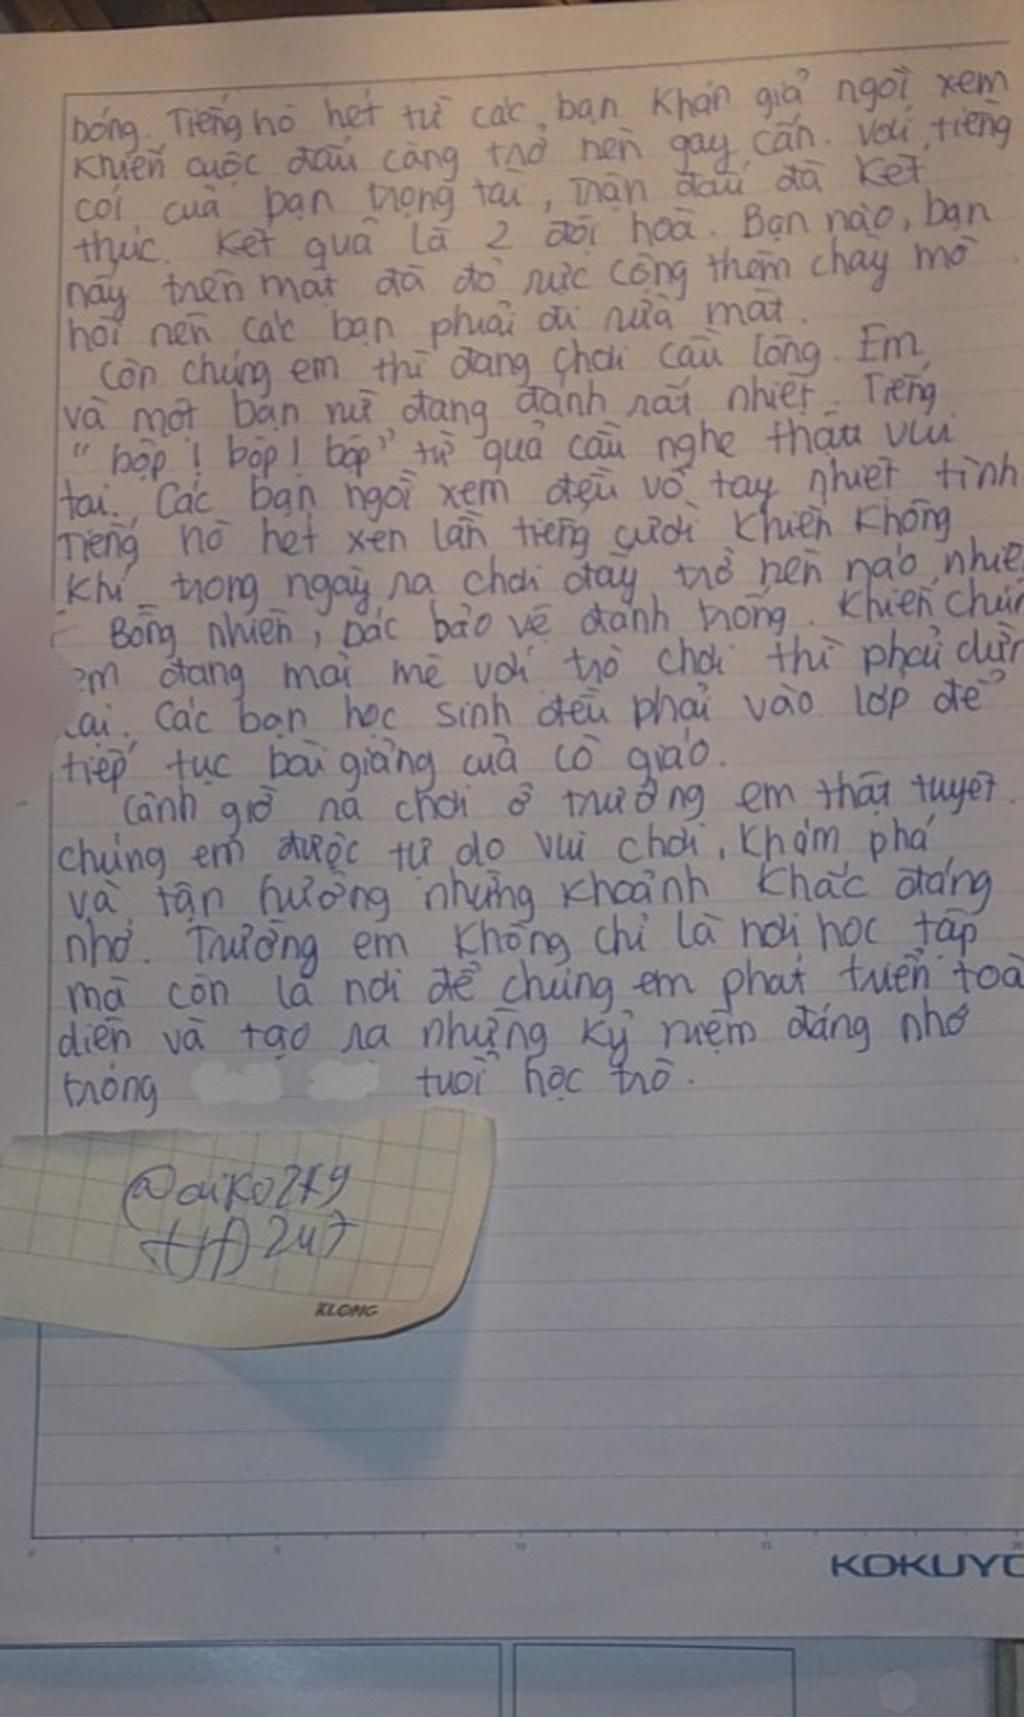 bóng. Tiếng hò hét từ các bạn khán giả ngồi xem
khiến cuộc đấu càng trở nên gay cấn. Với tiếng
còi của bạn trọng tài, trận đấu đã kết
thúc. Kết quả là 2 đội hoà. Bạn nào, bạn
nấy trên mặt đã đỏ rực cộng thêm chảy mồ
hôi nên các bạn phải đi rửa mặt.
Còn chúng em thì đang chơi cầu lông. Em
và một bạn nữ đang đánh rất nhiệt. Tiếng
"bộp! bộp! bộp" từ quả cầu nghe thật vui
tai. Các bạn ngồi xem đều vỗ tay nhiệt tình
Tiếng hò hét xen lẫn tiếng cười khiến không
khí trong ngày ra chơi đầy trở nên náo nhiệ
Bỗng nhiên, bác bảo vệ đánh trống. Khiến chún
em đang mải mê với trò chơi thì phải dừn
lại. Các bạn học sinh đều phải vào lớp để
tiếp tục bài giảng của cô giáo.
Cảnh giờ ra chơi ở trường em thật tuyệt.
chúng em được tự do vui chơi, khám phá
và tận hưởng những khoảnh khắc đáng
nhớ. Trường em không chỉ là nơi học tập
mà còn là nơi để chúng em phát triển toà
diện và tạo ra những kỷ niệm đáng nhớ
trong tuổi học trò.
@aiko2k9
247
KLONG
0 5 10 15 20
KOKUYO